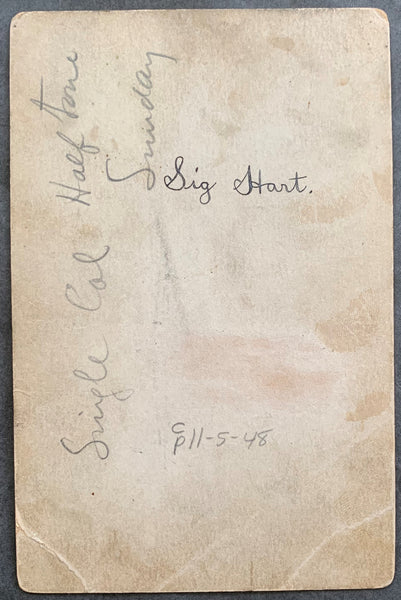 Single Col Half tone
Sunday
Sig Hart.
cp 11-5-48